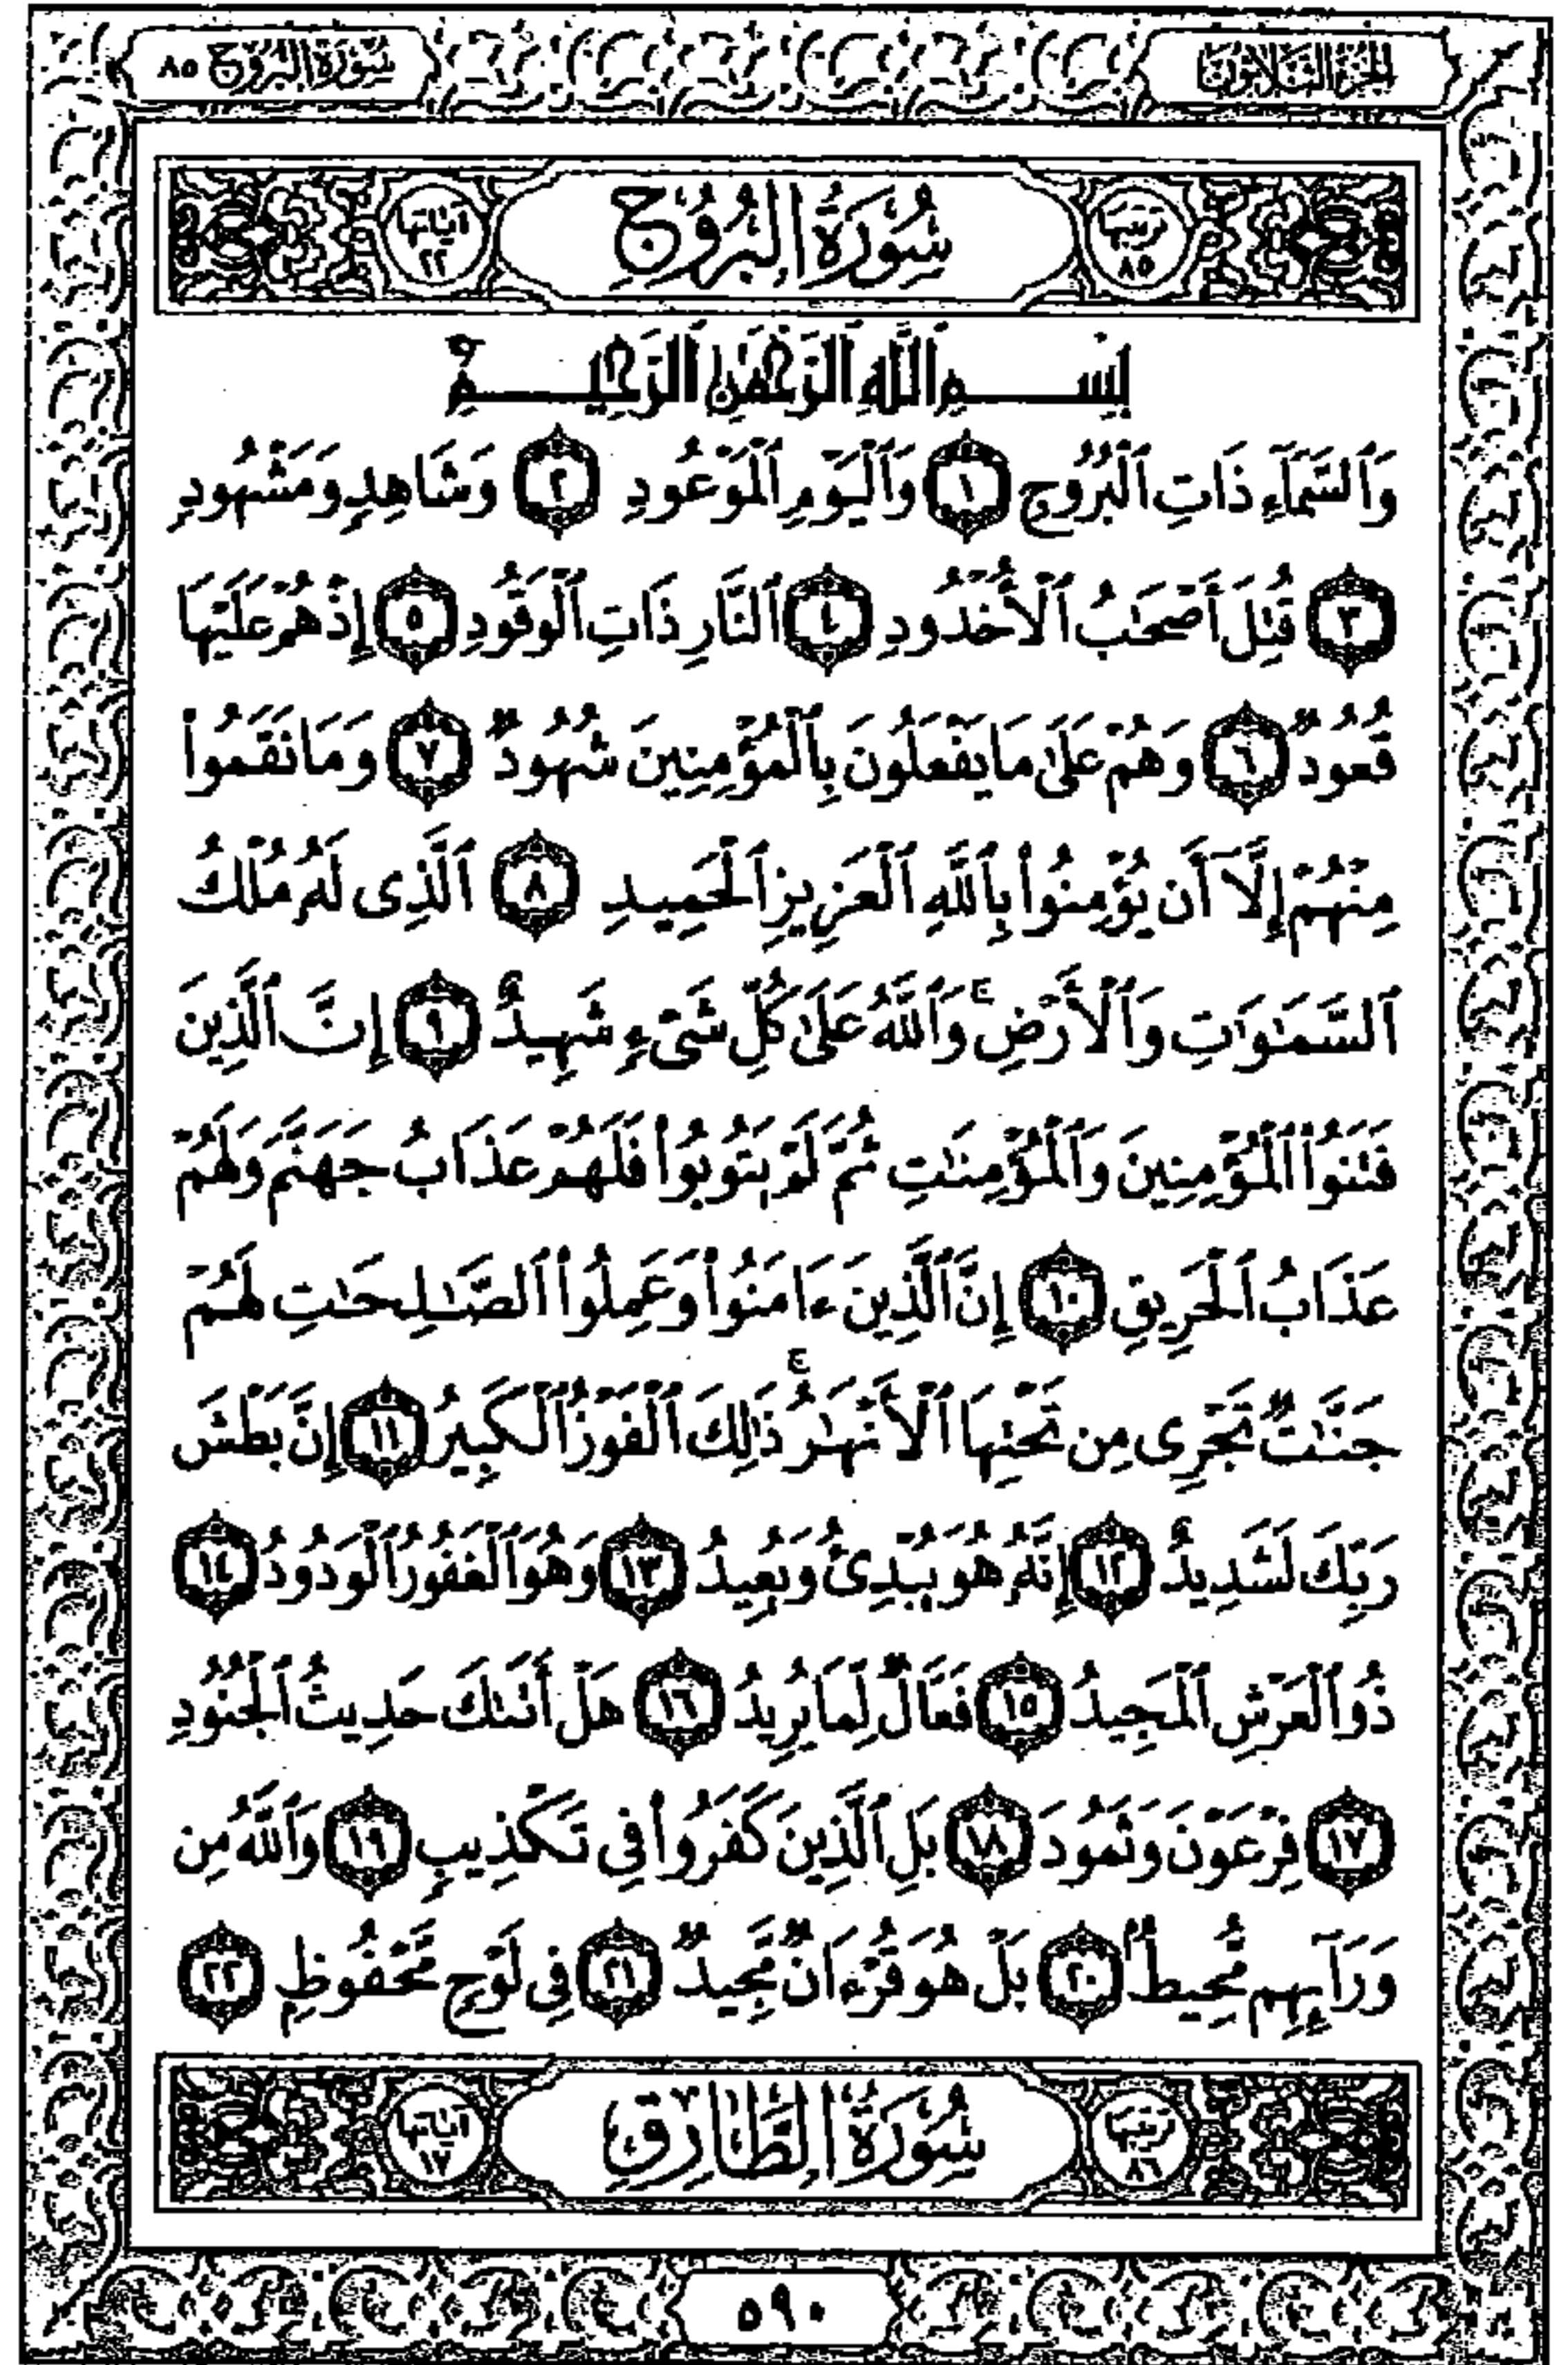 الجزء الثلاثون
سورة البروج ٨٥
ترتيبها ٨٥
سُورَةُ الْبُرُوجِ
آياتها ٢٢
بِسْمِ ٱللَّهِ ٱلرَّحْمَٰنِ ٱلرَّحِيمِ
وَٱلسَّمَآءِ ذَاتِ ٱلْبُرُوجِ ١ وَٱلْيَوْمِ ٱلْمَوْعُودِ ٢ وَشَاهِدٍ وَمَشْهُودٍ
٣ قُتِلَ أَصْحَٰبُ ٱلْأُخْدُودِ ٤ ٱلنَّارِ ذَاتِ ٱلْوَقُودِ ٥ إِذْ هُمْ عَلَيْهَا
قُعُودٌ ٦ وَهُمْ عَلَىٰ مَا يَفْعَلُونَ بِٱلْمُؤْمِنِينَ شُهُودٌ ٧ وَمَا نَقَمُوا۟
مِنْهُمْ إِلَّآ أَن يُؤْمِنُوا۟ بِٱللَّهِ ٱلْعَزِيزِ ٱلْحَمِيدِ ٨ ٱلَّذِى لَهُۥ مُلْكُ
ٱلسَّمَٰوَٰتِ وَٱلْأَرْضِ ۚ وَٱللَّهُ عَلَىٰ كُلِّ شَىْءٍ شَهِيدٌ ٩ إِنَّ ٱلَّذِينَ
فَتَنُوا۟ ٱلْمُؤْمِنِينَ وَٱلْمُؤْمِنَٰتِ ثُمَّ لَمْ يَتُوبُوا۟ فَلَهُمْ عَذَابُ جَهَنَّمَ وَلَهُمْ
عَذَابُ ٱلْحَرِيقِ ١٠ إِنَّ ٱلَّذِينَ ءَامَنُوا۟ وَعَمِلُوا۟ ٱلصَّٰلِحَٰتِ لَهُمْ
جَنَّٰتٌ تَجْرِى مِن تَحْتِهَا ٱلْأَنْهَٰرُ ۚ ذَٰلِكَ ٱلْفَوْزُ ٱلْكَبِيرُ ١١ إِنَّ بَطْشَ
رَبِّكَ لَشَدِيدٌ ١٢ إِنَّهُۥ هُوَ يُبْدِئُ وَيُعِيدُ ١٣ وَهُوَ ٱلْغَفُورُ ٱلْوَدُودُ ١٤
ذُو ٱلْعَرْشِ ٱلْمَجِيدُ ١٥ فَعَّالٌ لِّمَا يُرِيدُ ١٦ هَلْ أَتَىٰكَ حَدِيثُ ٱلْجُنُودِ
١٧ فِرْعَوْنَ وَثَمُودَ ١٨ بَلِ ٱلَّذِينَ كَفَرُوا۟ فِى تَكْذِيبٍ ١٩ وَٱللَّهُ مِن
وَرَآئِهِم مُّحِيطٌۢ ٢٠ بَلْ هُوَ قُرْءَانٌ مَّجِيدٌ ٢١ فِى لَوْحٍ مَّحْفُوظٍۭ ٢٢
ترتيبها ٨٦
سُورَةُ الطَّارِقِ
آياتها ١٧
٥٩٠